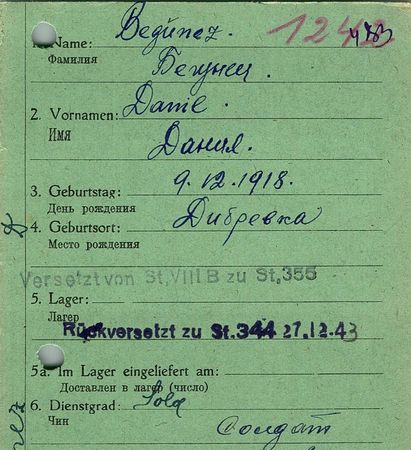 1. Name: Begunez. 1242
Фамилия Бегунец
2. Vornamen: Danie.
Имя Дания.
3. Geburtstag: 9.12.1918.
День рождения
4. Geburtsort: Дибревка
Место рождения
Versetzt von St. VIII B zu St. 355
5. Lager:
Лагер
Rückversetzt zu St. 344 27.12.43
5a. Im Lager eingeliefert am:
Доставлен в лагер (число)
6. Dienstgrad: Sold
Чин Солдат